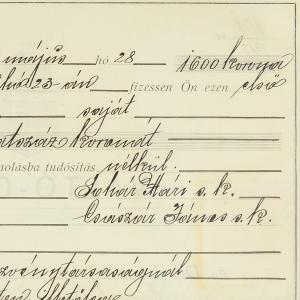 május hó 28 1600 korona
hó 23-án fizessen Ön ezen első
saját
atszáz koronát
molásba tudósítás nélkül.
Sohár Mári s. k.
Császár János s. k.
zvénytársaságnál